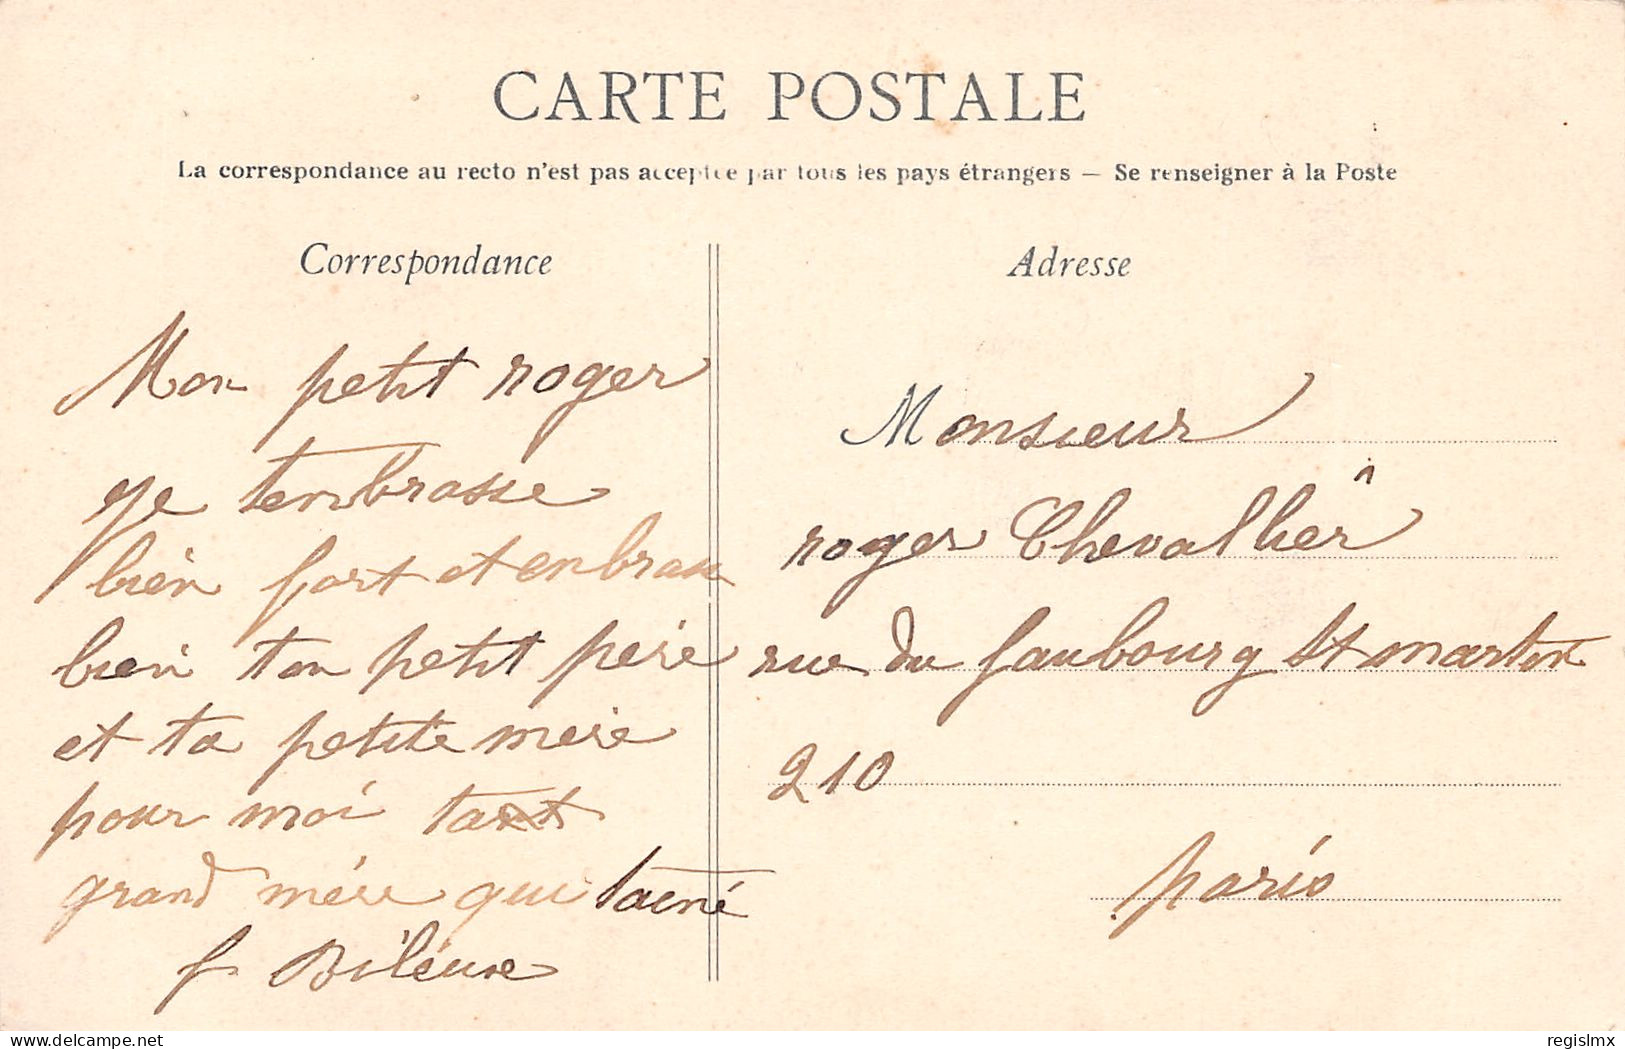 CARTE POSTALE
La correspondance au recto n'est pas acceptée par tous les pays étrangers — Se renseigner à la Poste
Correspondance
Mon petit roger
je tembrasse
bien fort et enbrasse
bien ton petit père
et ta petite mère
pour moi ta
grand mère qui taime
f
Adresse
Monsieur
roger Chevallier
rue du faubourg St martin
210
paris
delcampe.net
regislmx